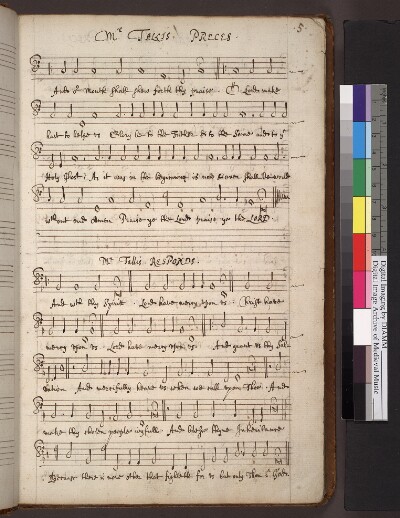 5
Mr TALLIS. PRECES.
And or mouth shall shew forth thy praise. O Lord make
hast to helpe us Glory be to the Father & to the Sonne and to ye
Holy Ghost: As it was in the beginning is now & ever shall be world
without end Amen Praise ye the Lord praise ye the LORD.
Mr Tallis RESPONDS.
And wth thy Spirit. Lord have mercy upon us. Christ have
mercy upon us. Lord have mercy upon us. And grant us thy Sal-
vation And mercifully heare us when we call upon Thee. And
make thy chosen people ioyfull. And blesse thyne Inheritance
Because there is none other that fighteth for us but only Thou O God.
Digital Imaging by DIAMM
Digital Image Archive of Medieval Music